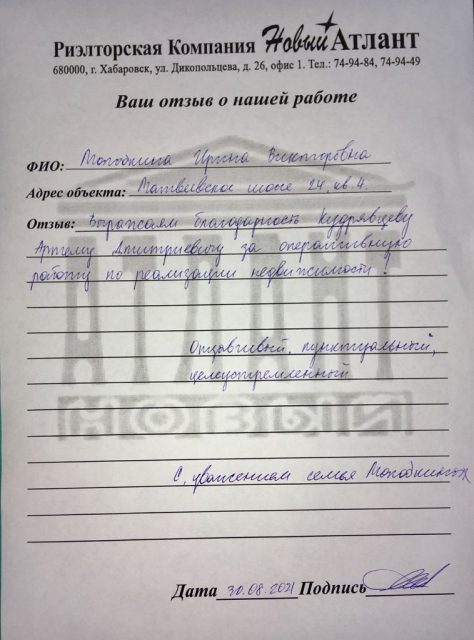 Риэлторская Компания Новый Атлант
680000, г. Хабаровск, ул. Дикопольцева, д. 26, офис 1. Тел.: 74-94-84, 74-94-49
Ваш отзыв о нашей работе
ФИО: Молодкина Ирина Викторовна
Адрес объекта: Матвеевское шоссе 24 кв 4.
Отзыв: Выражаем благодарность Кудрявцеву
Артему Дмитриевичу за оперативную
работу по реализации недвижимости!
АТЛАНТ
Отзывчивый, пунктуальный,
целеустремленный
НОВЫЙ
С, уважением семья Молодкиных
Дата 30.08.2021 Подпись